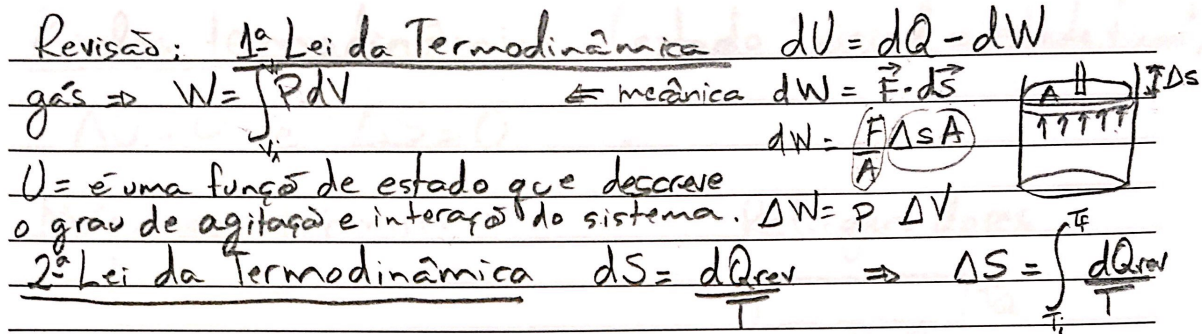 Revisão: 1ª Lei da Termodinâmica dU = dQ - dW
gás ⇒ W = ∫ P dV ⇐ mecânica dW = F⃗ · ds⃗
Vi
dW = F/A Δs A
A Δs
U = é uma função de estado que descreve
o grau de agitação e interação do sistema. ΔW = p ΔV
2ª Lei da Termodinâmica dS = dQrev/T ⇒ ΔS = ∫ dQrev/T
Tf
Ti